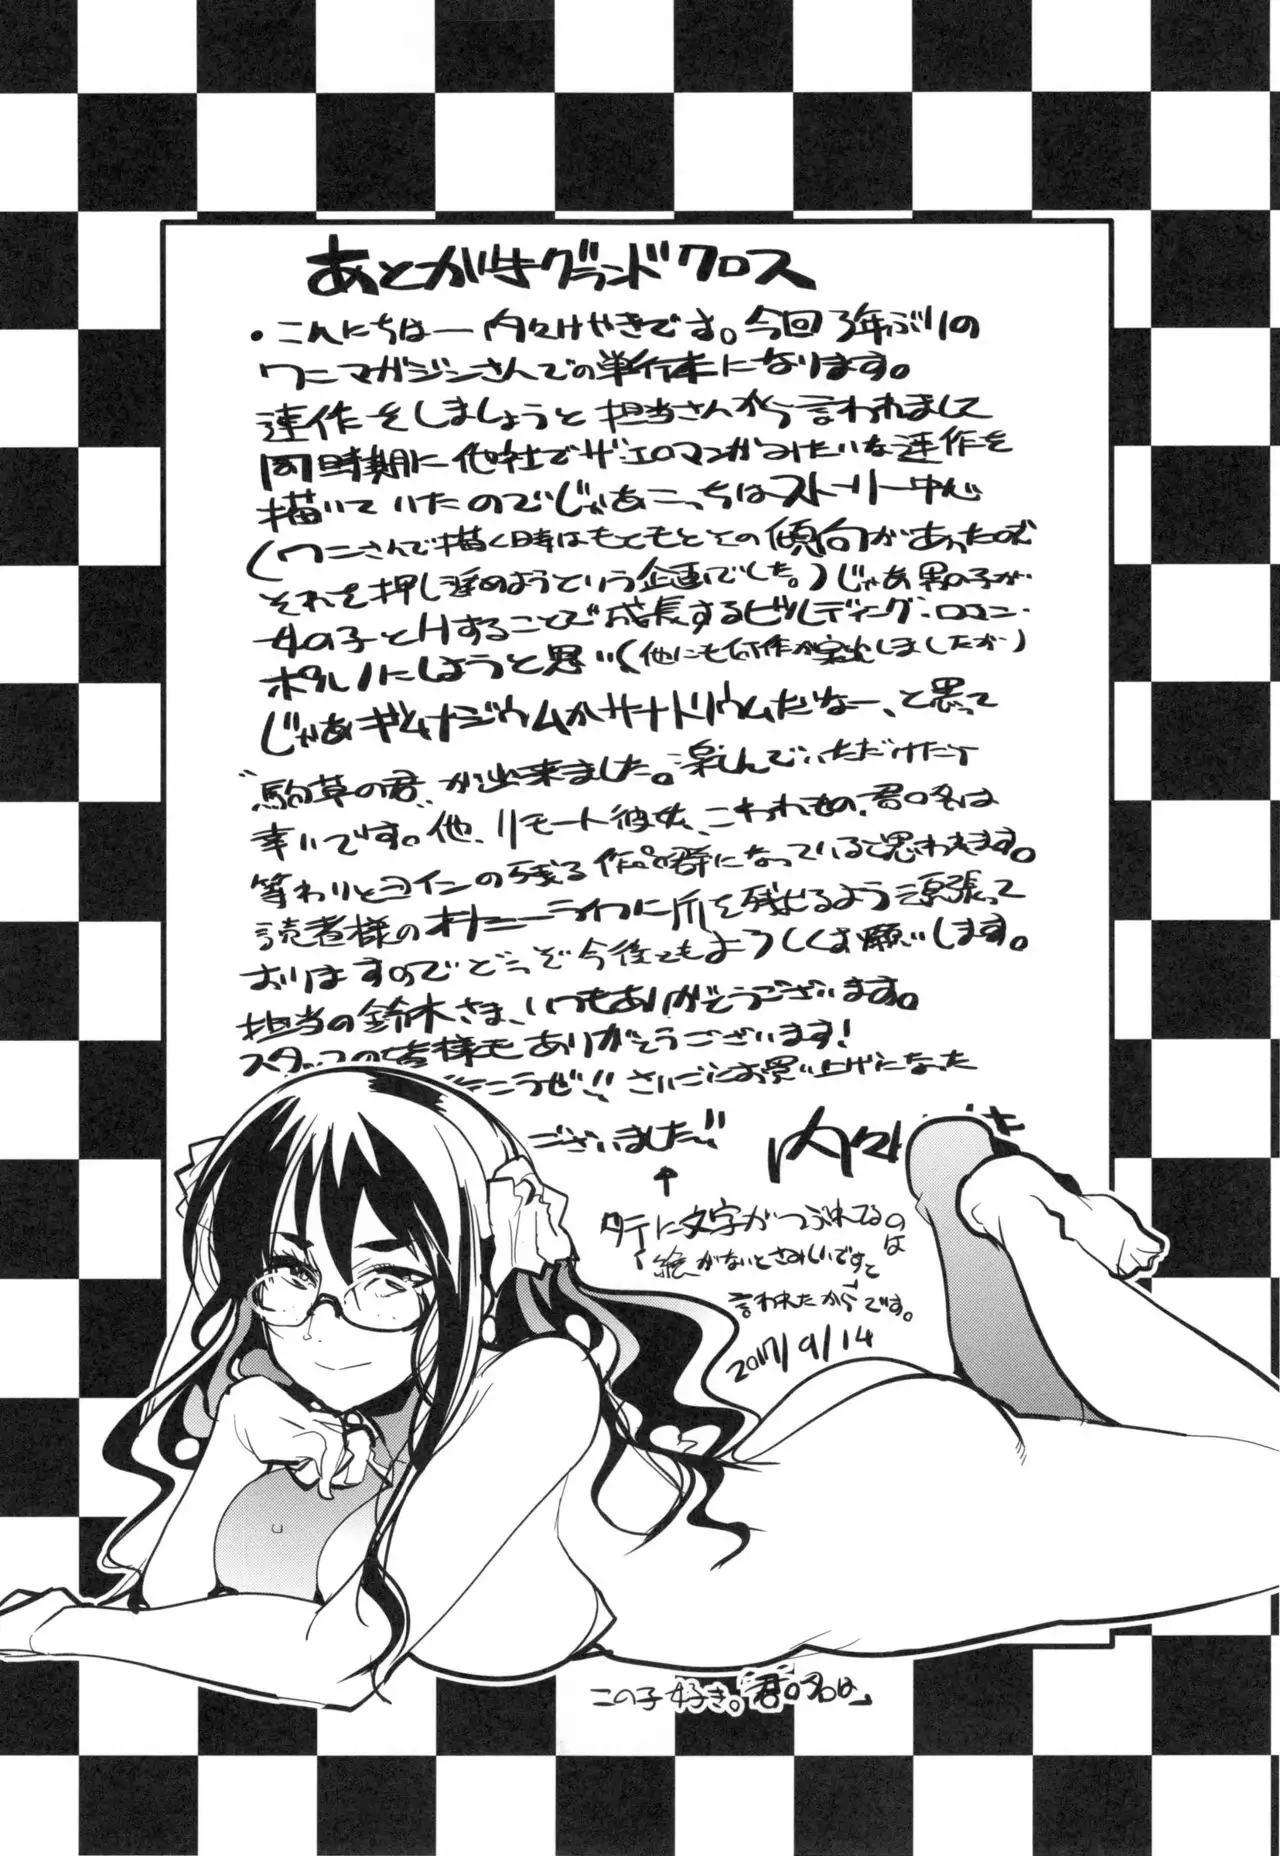 あとがきグランドクロス
・こんにちはー内々けやきです。今回3年ぶりの
ワニマガジンさんでの単行本になります。
連作をしましょうと担当さんから言われまして
同時期に他社でザ・エロマンガみたいな連作を
描いていたのでじゃあこっちはストーリー中心
(ワニさんで描く時はもともとその傾向があったので
それを押し進めようという企画でした。)じゃあ男の子が
女の子とHすることで成長するビルディング・ロマン・
ポルノにしようと思い(他にも何作か実出しましたが)
じゃあギムナジウムかサナトリウムだなー、と思って
"駒草の君"が出来ました。楽しんでいただけたら
幸いです。他、リモート彼女、こわれもの、君の名は
等わりとヨインの残る作品群になっていると思われます。
読者様のオナニーライフに爪を残せるよう頑張って
おりますのでどうぞ今後ともよろしくお願いします。
担当の鈴木さま、いつもありがとうございます。
スタッフの皆様もありがとうございます!
さいごにお買い上げになった
ございました!!
内々
↑
タテに文字がつぶれてるのは
絵がないとさみしいですと
言われたからです。
2017/9/14
この子好き。「君の名は」